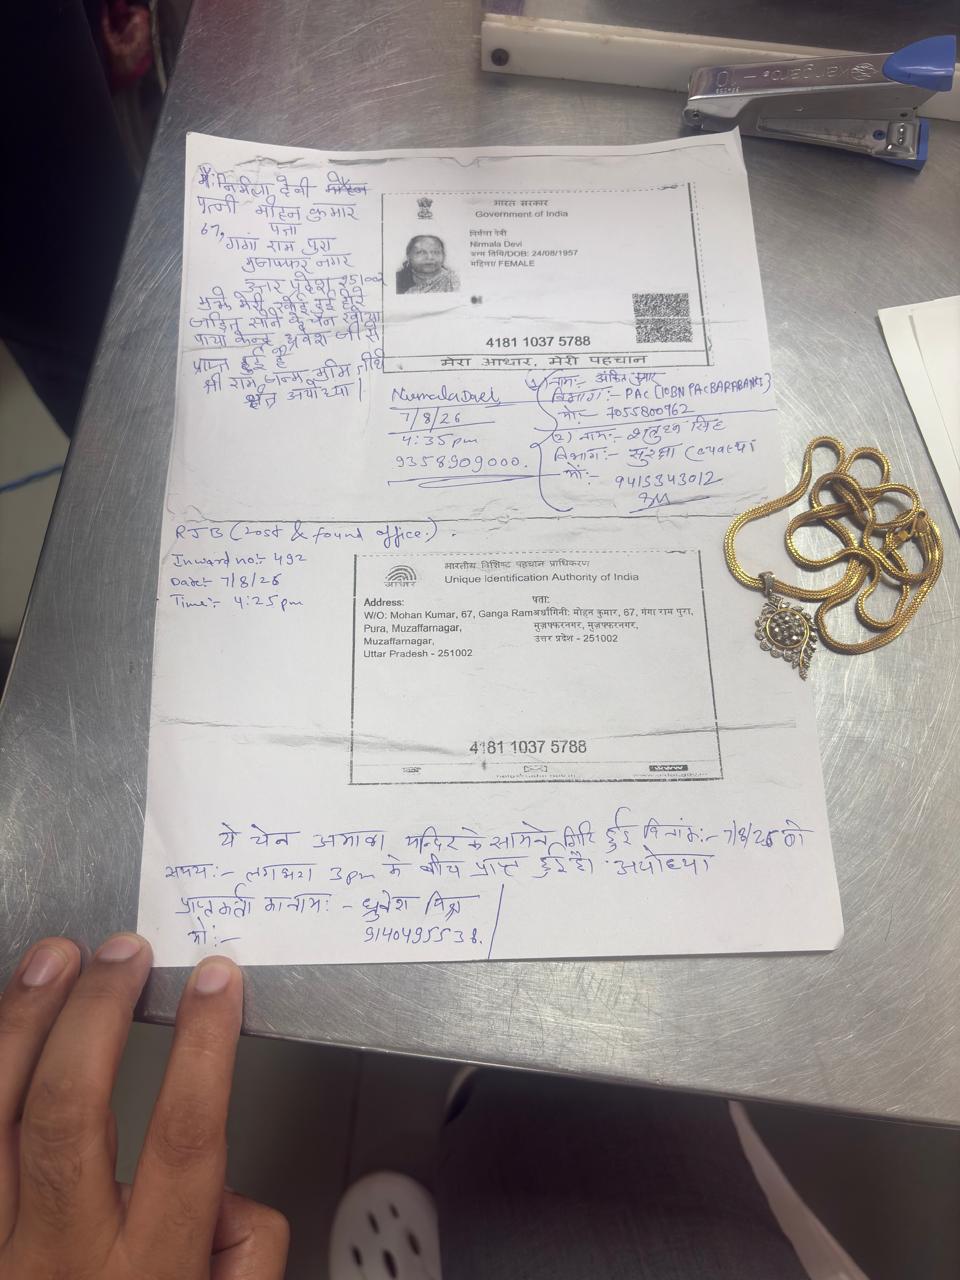 मैं: निर्मला देवी
पत्नी मोहन कुमार
67, पता
गंगा राम पुरा
मुजफ्फर नगर
उत्तर प्रदेश 251002
मुझे मेरी खोई हुई हीरे
जड़ित सोने की चेन खोया
पाया केन्द्र
प्राप्त हुई है
श्री राम जन्म भूमि तीर्थ
क्षेत्र अयोध्या।
भारत सरकार
Government of India
निर्मला देवी
Nirmala Devi
जन्म तिथि/DOB: 24/08/1957
महिला/ FEMALE
4181 1037 5788
मेरा आधार, मेरी पहचान
Nirmala Devi
7/8/26
4:35pm
9358909000.
नामः- अंकित कुमार
विभागः- PAC [10BN PAC BARABANKI]
मो:- 7055800962
(2) नामः- शत्रुघ्न सिंह
विभागः- सुरक्षा
मोंः- 9415343012
RJB (Lost & found office).
Inward no:- 492
Date:- 7/8/26
Time:- 4:25pm
भारतीय विशिष्ट पहचान प्राधिकरण
Unique Identification Authority of India
आधार
Address:
W/O: Mohan Kumar, 67, Ganga Ram
Pura, Muzaffarnagar,
Muzaffarnagar,
Uttar Pradesh - 251002
पता:
अर्धांगिनी: मोहन कुमार, 67, गंगा राम पुरा,
मुज़फ्फरनगर, मुज़फ्फरनगर,
उत्तर प्रदेश - 251002
4181 1037 5788
www
ये चेन अमावा मन्दिर के सामने गिरि हुई दिनांकः- 7/8/26 को
समयः- लगभग 3pm के बीच प्राप्त हुई है। अयोध्या
प्राप्तकर्ता का नामः- ध्रुवेश मिश्र
मो:- 9140495538.